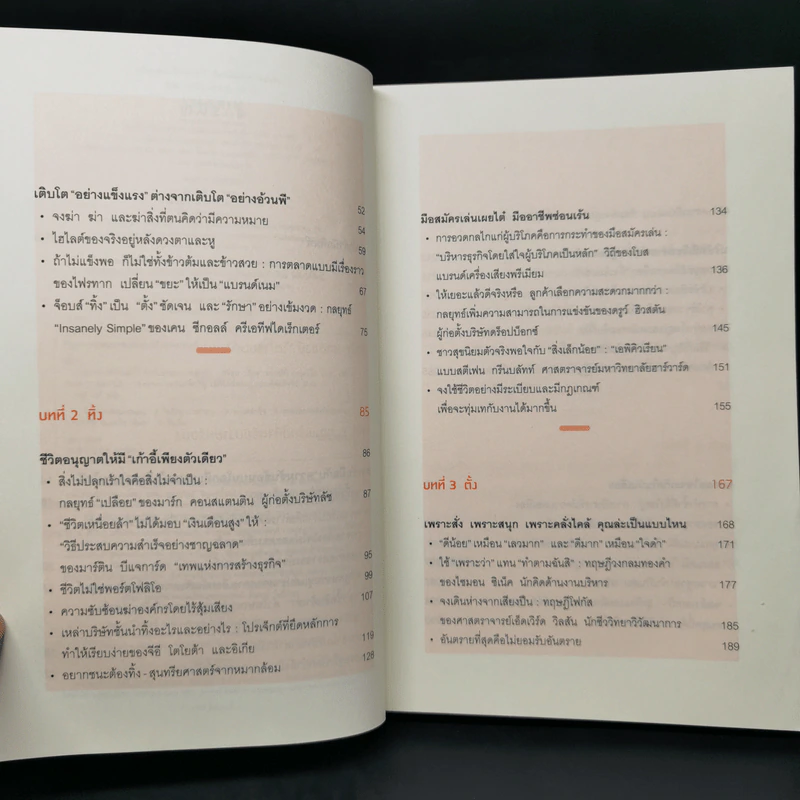 เติบโต "อย่างแข็งแรง" ต่างจากเติบโต "อย่างอ้วนพี" 52
• จงฆ่า ฆ่า และฆ่าสิ่งที่ตนคิดว่ามีความหมาย 54
• ไฮไลต์ของจริงอยู่หลังดวงตาและหู 59
• ถ้าไม่แข็งพอ ก็ไม่ใช่ทั้งข้าวต้มและข้าวสวย : การตลาดแบบมีเรื่องราว
ของไฟรทาก เปลี่ยน "ขยะ" ให้เป็น "แบรนด์เนม" 67
• จ็อบส์ "ทิ้ง" เป็น "ตั้ง" ชัดเจน และ "รักษา" อย่างเข้มงวด : กลยุทธ์
"Insanely Simple" ของเคน ซีกอลล์ ครีเอทีฟไดเร็กเตอร์ 75
บทที่ 2 ทิ้ง 85
ชีวิตอนุญาตให้มี "เก้าอี้เพียงตัวเดียว" 86
• สิ่งไม่ปลุกเร้าใจคือสิ่งไม่จำเป็น :
กลยุทธ์ "เปลือย" ของมาร์ก คอนสแตนติน ผู้ก่อตั้งบริษัทลัช 87
• "ชีวิตเหนื่อยล้า" ไม่ได้มอบ "เงินเดือนสูง" ให้ :
"วิธีประสบความสำเร็จอย่างชาญฉลาด"
ของมาร์ติน บีแจการ์ด "เทพแห่งการสร้างธุรกิจ" 95
• ชีวิตไม่ใช่พอร์ตโฟลิโอ 99
• ความซับซ้อนฆ่าองค์กรโดยไร้สุ้มเสียง 107
• เหล่าบริษัทชั้นนำทิ้งอะไรและอย่างไร : โปรเจ็กต์ที่ยึดหลักการ
ทำให้เรียบง่ายของจีอี โตโยต้า และอิเกีย 119
• อยากชนะต้องทิ้ง - สุนทรียศาสตร์จากหมากล้อม 126
มือสมัครเล่นเผยไต๋ มืออาชีพซ่อนเร้น 134
• การอวดกลไกแก่ผู้บริโภคคือการกระทำของมือสมัครเล่น :
"บริหารธุรกิจโดยใส่ใจผู้บริโภคเป็นหลัก" วิถีของโบส
แบรนด์เครื่องเสียงพรีเมียม 136
• ให้เยอะแล้วดีจริงหรือ ลูกค้าเลือกความสะดวกมากกว่า :
กลยุทธ์เพิ่มความสามารถในการแข่งขันของดรูว์ ฮิวสตัน
ผู้ก่อตั้งบริษัทดร็อปบ็อกซ์ 145
• ชาวสุขนิยมตัวจริงพอใจกับ "สิ่งเล็กน้อย" : "เอพิคิวเรียน"
แบบสตีเฟน กรีนบลัทท์ ศาสตราจารย์มหาวิทยาลัยฮาร์วาร์ด 151
• จงใช้ชีวิตอย่างมีระเบียบและมีกฎเกณฑ์
เพื่อจะทุ่มเทกับงานได้มากขึ้น 155
บทที่ 3 ตั้ง 167
เพราะสั่ง เพราะสนุก เพราะคลั่งไคล้ คุณล่ะเป็นแบบไหน 168
• "ดีน้อย" เหมือน "เลวมาก" และ "ดีมาก" เหมือน "ใจดำ" 171
• ใช้ "เพราะว่า" แทน "ทำตามฉันสิ" : ทฤษฎีวงกลมทองคำ
ของไซมอน ซิเน็ค นักคิดด้านงานบริหาร 177
• จงเดินห่างจากเสียงปืน : ทฤษฎีโฟกัส
ของศาสตราจารย์เอ็ดเวิร์ด วิลสัน นักชีววิทยาวิวัฒนาการ 185
• อันตรายที่สุดคือไม่ยอมรับอันตราย 189